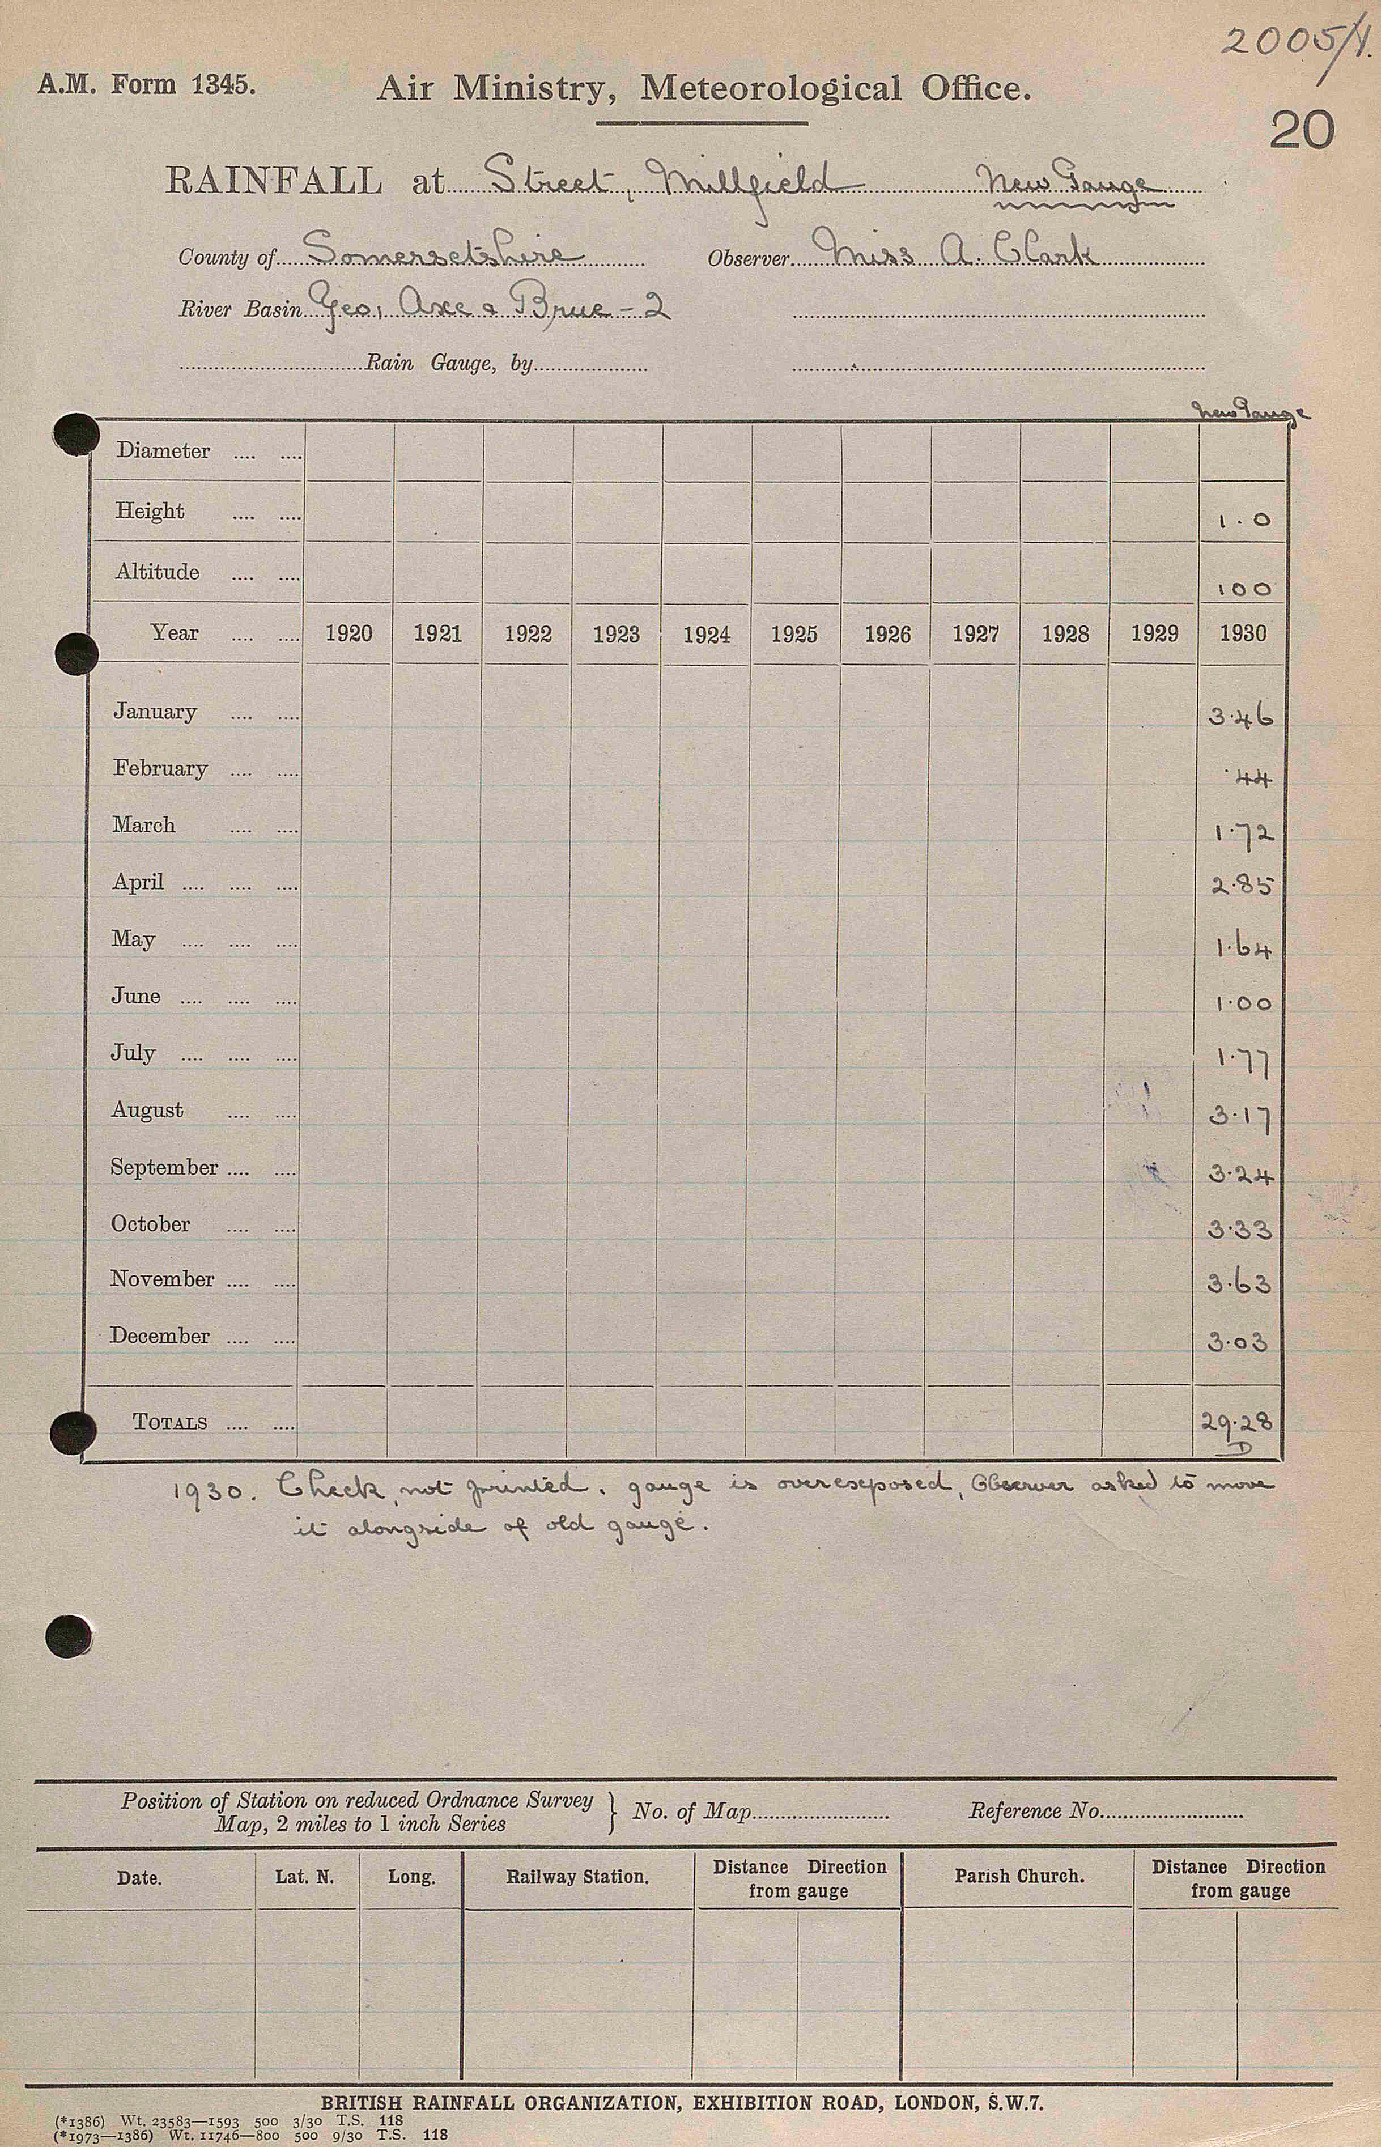 2005/1.
A.M. Form 1345. Air Ministry, Meteorological Office.
20
RAINFALL at Street, Millfield New Gauge
County of Somersetshire Observer Miss A. Clark
River Basin Yeo, Axe & Brue - 2
Rain Gauge, by
New Gauge
Diameter
Height 1.0
Altitude 100
Year 1920 1921 1922 1923 1924 1925 1926 1927 1928 1929 1930
January 3.46
February .44
March 1.72
April 2.85
May 1.64
June 1.00
July 1.77
August 3.17
September 3.24
October 3.33
November 3.63
December 3.03
TOTALS 29.28
D
1930. Check, not printed. gauge is overexposed, Observer asked to move
it alongside of old gauge.
Position of Station on reduced Ordnance Survey
Map, 2 miles to 1 inch Series } No. of Map Reference No.
Date. Lat. N. Long. Railway Station. Distance Direction from gauge Parish Church. Distance Direction from gauge
BRITISH RAINFALL ORGANIZATION, EXHIBITION ROAD, LONDON, S.W.7.
(*1386) Wt. 23583—1593 500 3/30 T.S. 118
(*1973—1386) Wt. 11746—800 500 9/30 T.S. 118